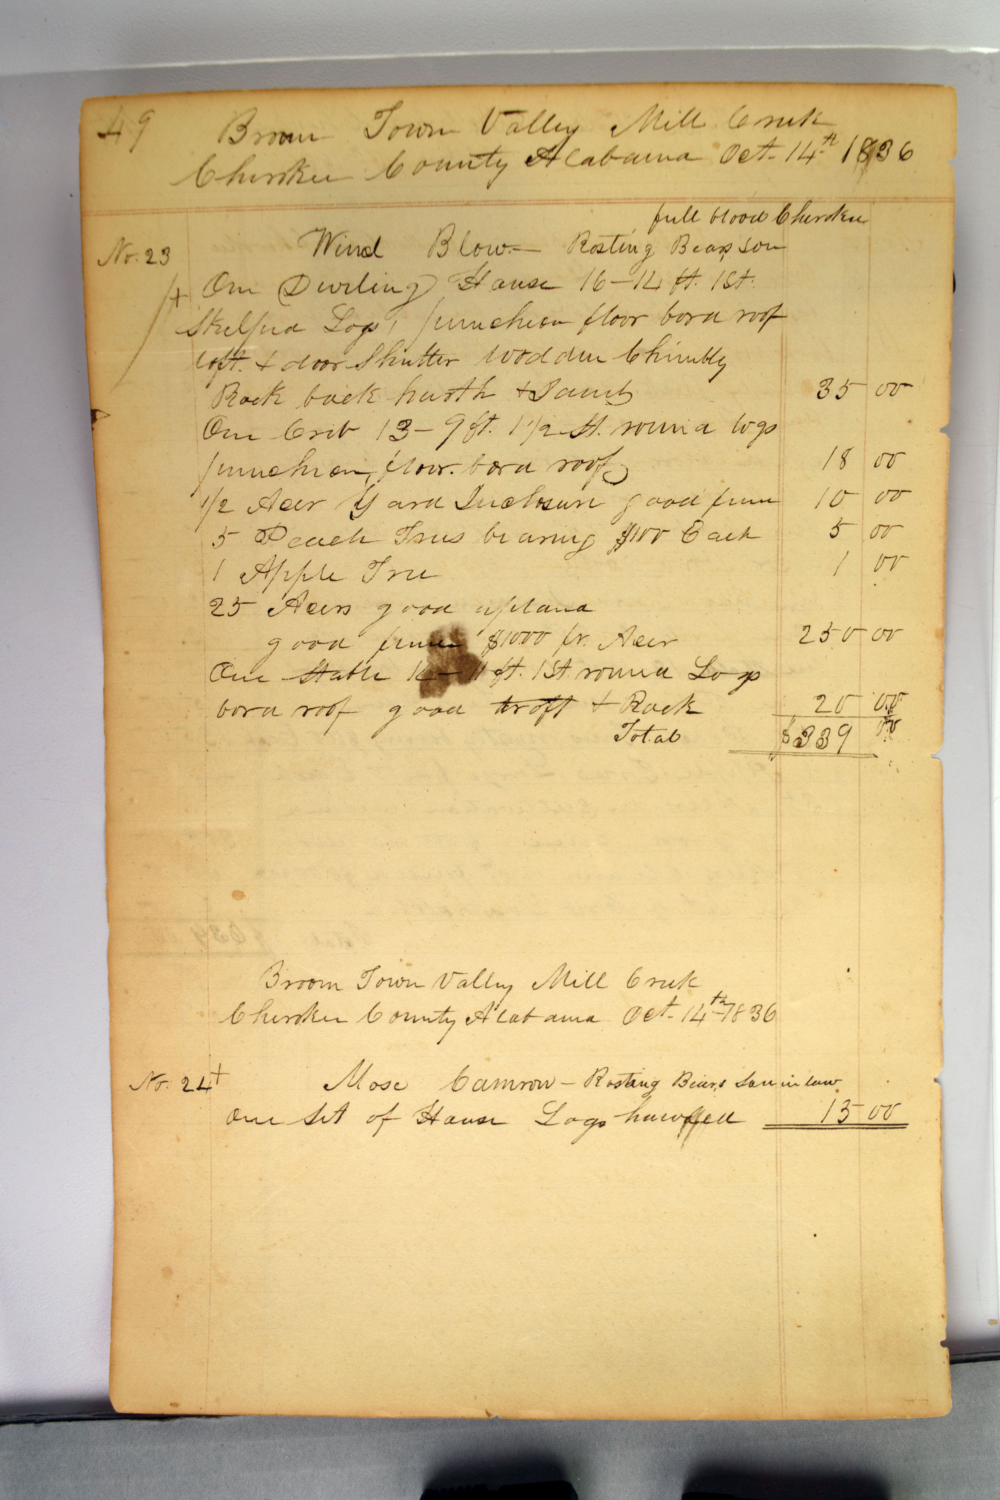 49 Broom Town Valley Mill Creek
Cherokee County Alabama Oct. 14th 1836
full blood Cherokee
No. 23 Wind Blow — Rosting Bears son
+ One Dweling House 16 - 14 ft. 1 St.
Skelped Logs, puncheon floor bord roof
loft. & door Shutter wodden Chimbly
Rock back harth & Jamb 35 00
One Crib 13 - 9 ft. 1 1/2 St. round logs
puncheon, floor. bord roof 18 00
1/2 Acer Yard Inclosure good fence 10 00
5 Peach Trees bearing $1 00 Each 5 00
1 Apple Tree 1 00
25 Acers good upland
good fence $10 00 pr. Acer 250 00
One Stable 12 - 11 ft. 1 St. round Logs
bord roof good troft & Rack 20 00
Total $339 00
Broom Town Valley Mill Creek
Cherokee County Alabama Oct. 14th 1836
No. 24 + Mose Camron - Rosting Bears Son in law
One Set of House Logs 15 00